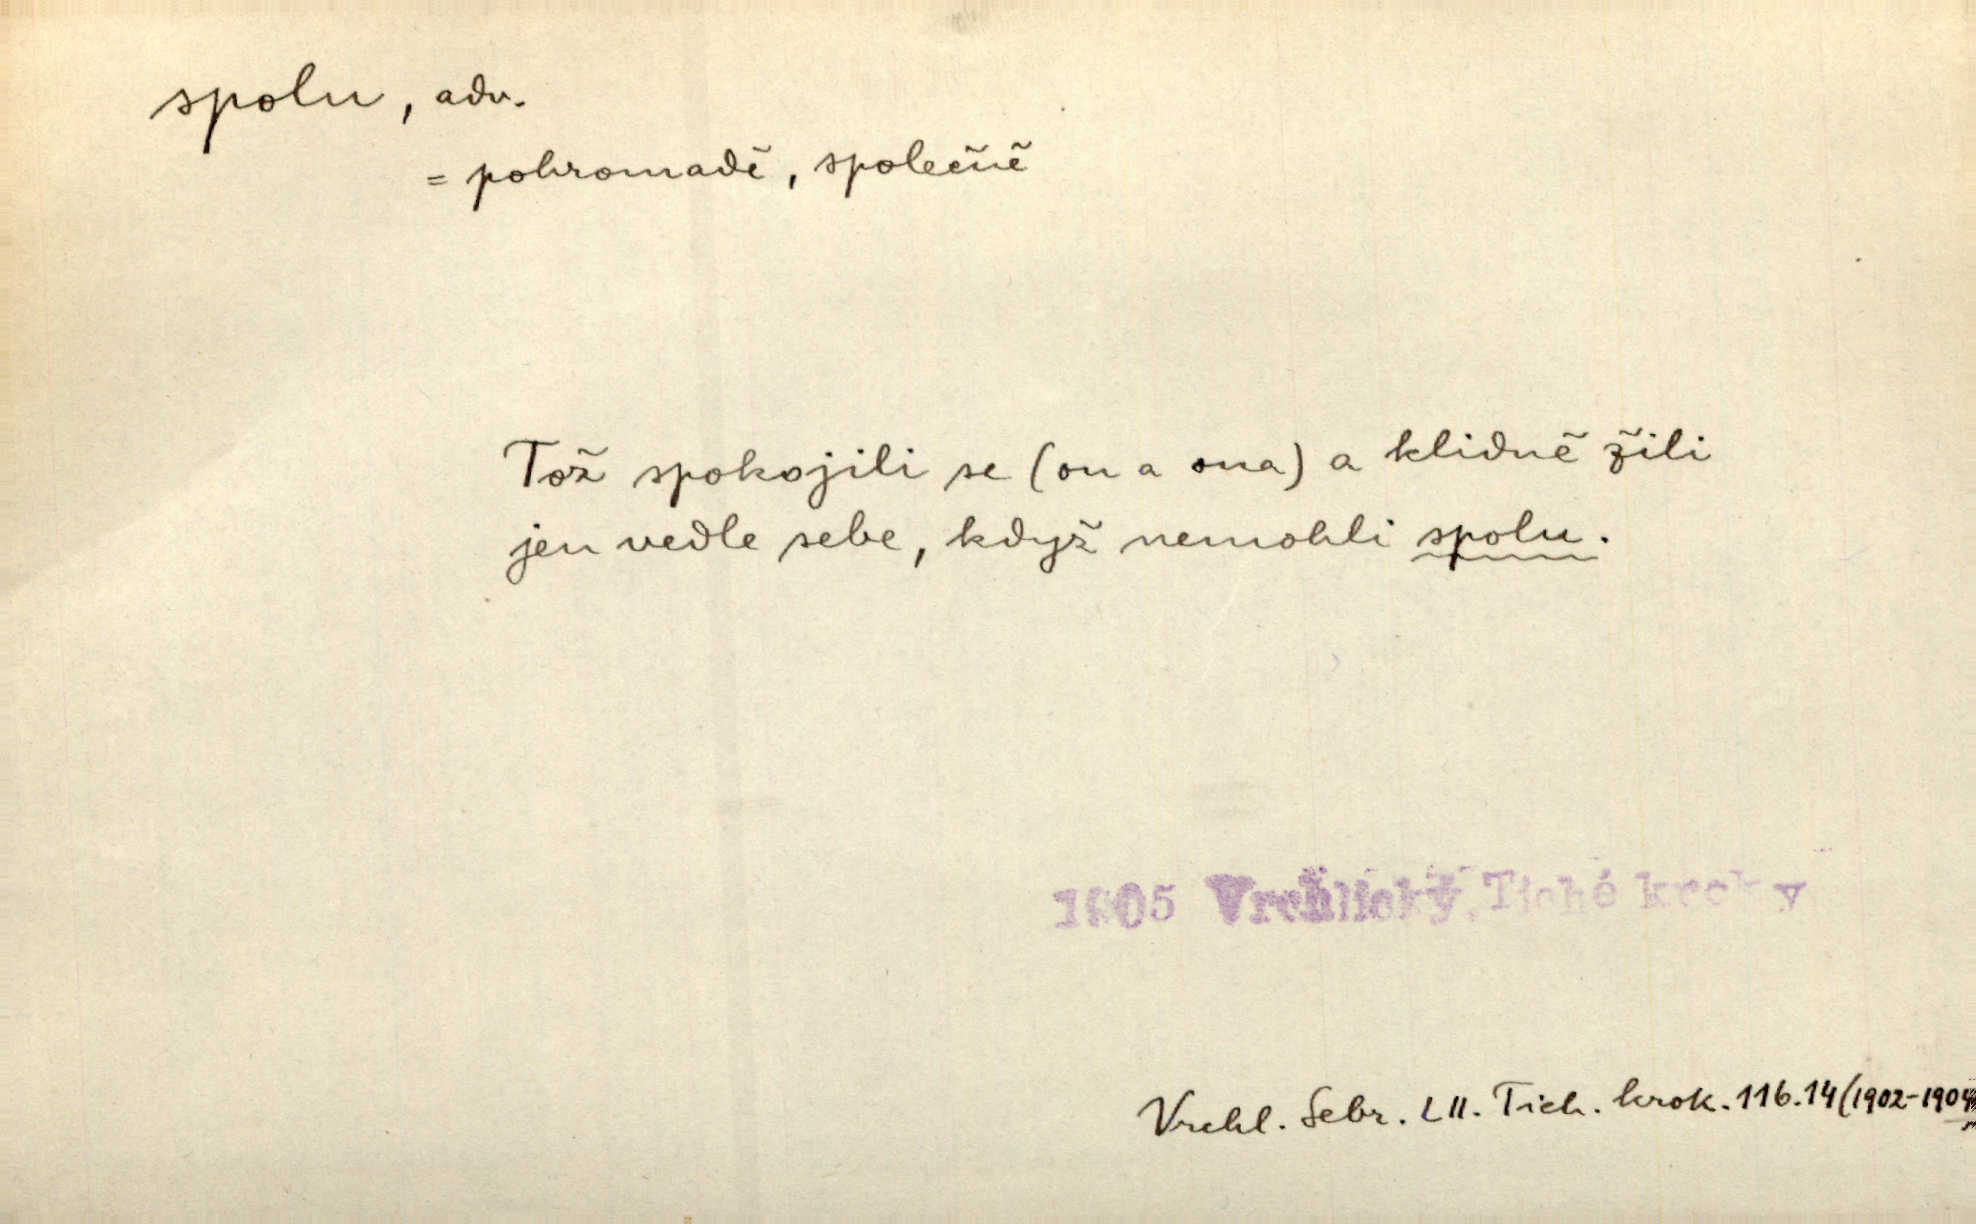 spolu, adv.
= pohromadě, společně
Tož spokojili se (on a ona) a klidně žili
jen vedle sebe, když nemohli spolu.
1905 Vrchlický, Tiché kroky
Vrchl. Sebr. LII. Tich. krok. 116.14 (1902-1904